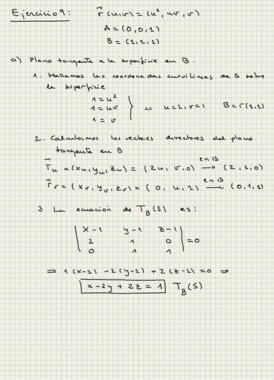 Ejercicio 9: r⃗(u,v) = (u², uv, v)
A = (0, 0, 1)
B = (1, 1, 1)
a) Plano tangente a la superficie en B.
1. Hallamos las coordenadas curvilíneas de B sobre
la superficie
1 = u²
1 = uv u = 1, v = 1 B = r(1,1)
1 = v
2. Calculamos los vectores directores del plano
tangente en B
r⃗u = (xu, yu, zu) = (2u, v, 0) en B → (2, 1, 0)
r⃗v = (xv, yv, zv) = (0, u, 1) en B → (0, 1, 1)
3 La ecuación de T_B(S) es:
| x-1 y-1 z-1 |
| 2 1 0 | = 0
| 0 1 1 |
⇒ 1(x-1) - 2(y-1) + 2(z-1) = 0 ⇒
x - 2y + 2z = 1 T_B(S)